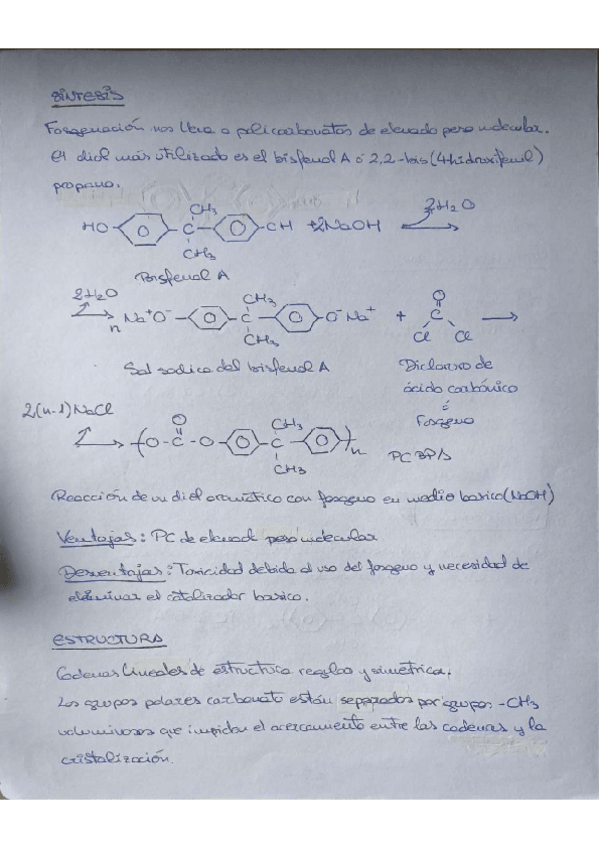 SÍNTESIS
Fosgenación nos lleva a policarbonatos de elevado peso molecular.
El diol más utilizado es el bisfenol A ó 2,2-bis(4hidroxifenil)
propano.
CH3
2H2O
HO- -C- -OH +2NaOH
CH3
Bisfenol A
2H2O
CH3
O
n Na+O- -C- -O-Na+ + C
CH3
Cl Cl
Sal sodica del bisfenol A
Dicloruro de
ácido carbónico
ó
Fosgeno
2(n-1)NaCl
O
CH3
(O-C-O- -C- )n
CH3
PC BPA
Reacción de un diol aromático con fosgeno en medio basico (NaOH)
Ventajas: PC de elevado peso molecular
Desventajas: Toxicidad debida al uso del fosgeno y necesidad de
eliminar el catalizador basico.
ESTRUCTURA
Cadenas lineales de estructura regular y simetrica.
Los grupos polares carbonato están separados por grupos -CH3
voluminosos que impiden el acercamiento entre las cadenas y la
cristalización.